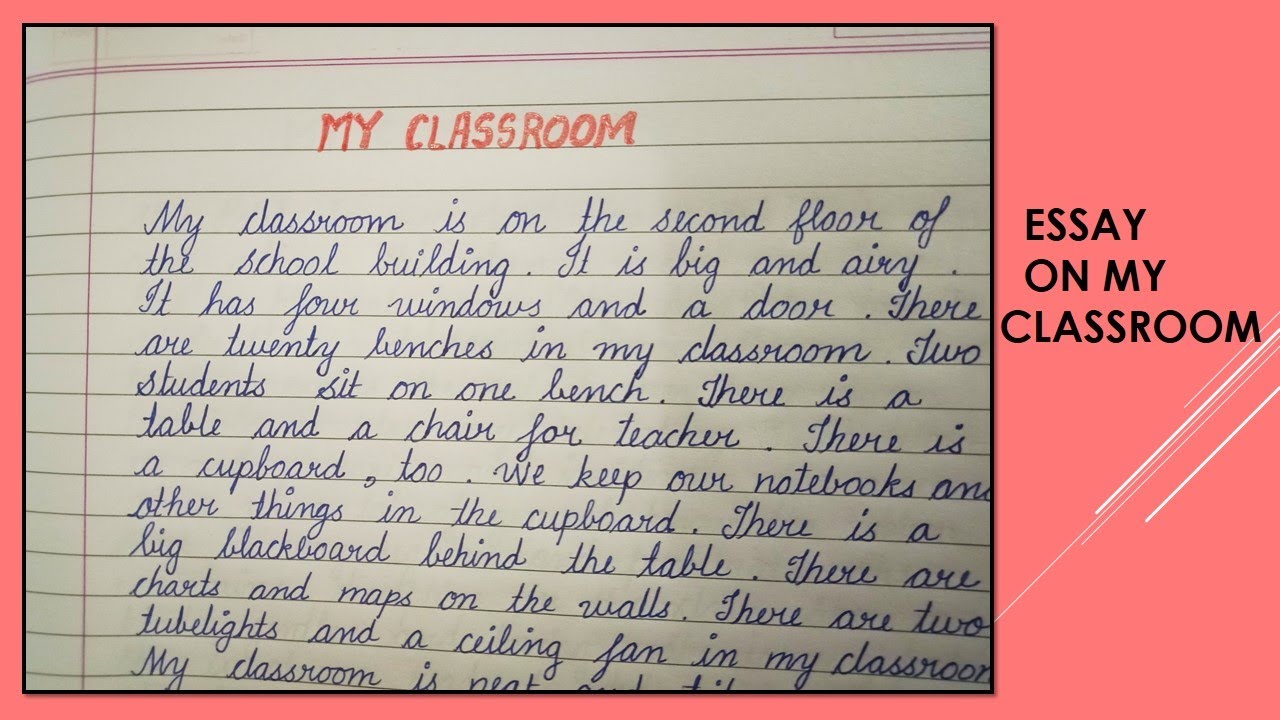 MY CLASSROOM
My classroom is on the second floor of
the school building. It is big and airy.
It has four windows and a door. There
are twenty benches in my classroom. Two
students sit on one bench. There is a
table and a chair for teacher. There is
a cupboard, too. We keep our notebooks and
other things in the cupboard. There is a
big blackboard behind the table. There are
charts and maps on the walls. There are two
tubelights and a ceiling fan in my classroom
My classroom is neat and
ESSAY
ON MY
CLASSROOM